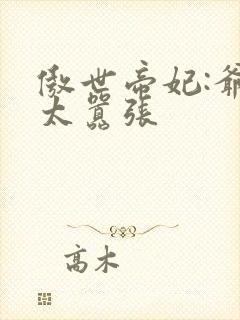 傲世帝妃:爺
太囂張
高木